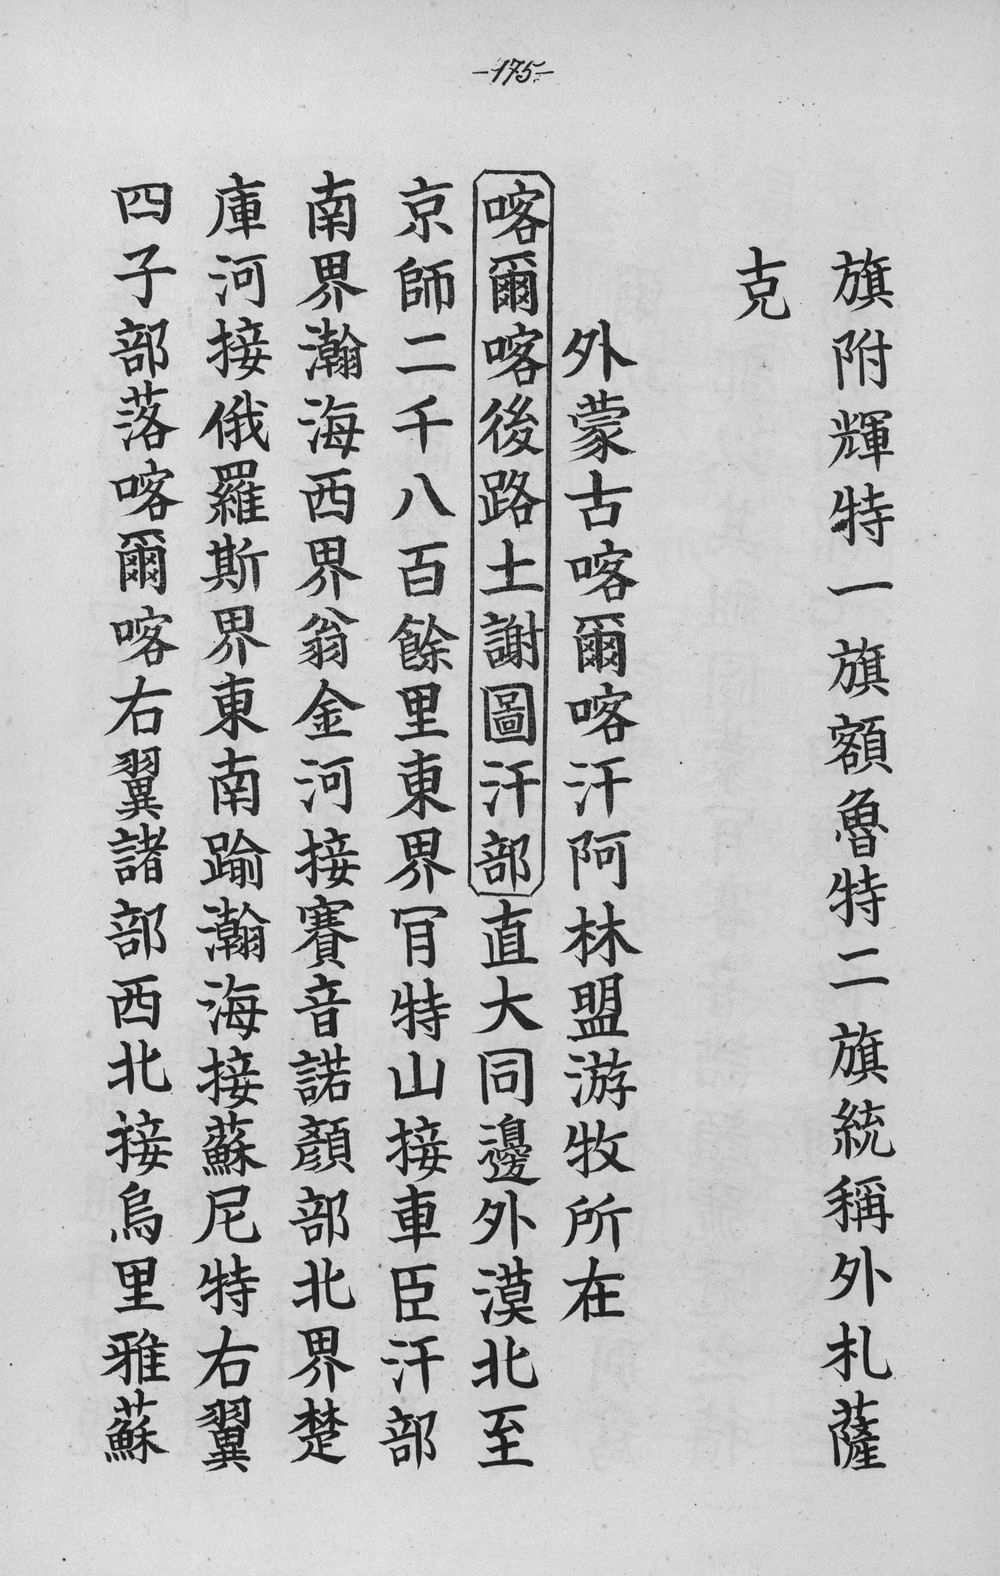 -175-
旗附輝特一旗額魯特二旗統稱外札薩
克
外蒙古喀爾喀汗阿林盟游牧所在
喀爾喀後路土謝圖汗部直大同邊外漠北至
京師二千八百餘里東界肎特山接車臣汗部
南界瀚海西界翁金河接賽音諾顏部北界楚
庫河接俄羅斯界東南踰瀚海接蘇尼特右翼
四子部落喀爾喀右翼諸部西北接烏里雅蘇